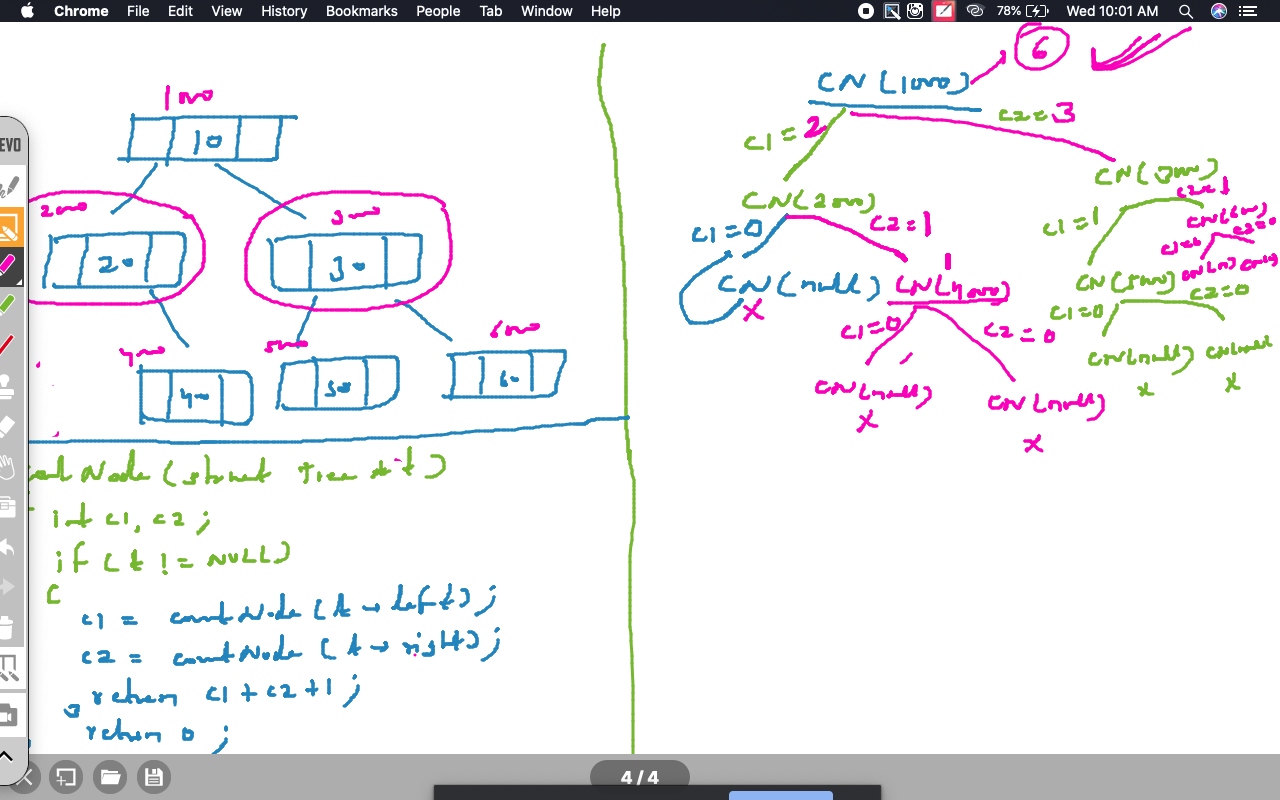 Chrome File Edit View History Bookmarks People Tab Window Help 78% Wed 10:01 AM
EVO
1000
10
2000
3000
20
30
4000
5000
6000
400
500
60
Node (struct tree *t)
int c1, c2 ;
if (t != NULL)
{
c1 = countNode (t → left) ;
c2 = countNode (t → right) ;
return c1 + c2 + 1 ;
}
return 0 ;
6
CN (1000)
c1 = 2
c2 = 3
CN (2000)
CN (3000)
c1 = 0
c2 = 1
c1 = 1
c2 = 1
CN (null)
x
1
CN (4000)
CN (6000)
c2 = 0
CN (5000)
c1 = 0
c2 = 0
c1 = 0
c2 = 0
CN (null)
x
CN (null)
x
CN (null)
x
CN (null)
x
4 / 4